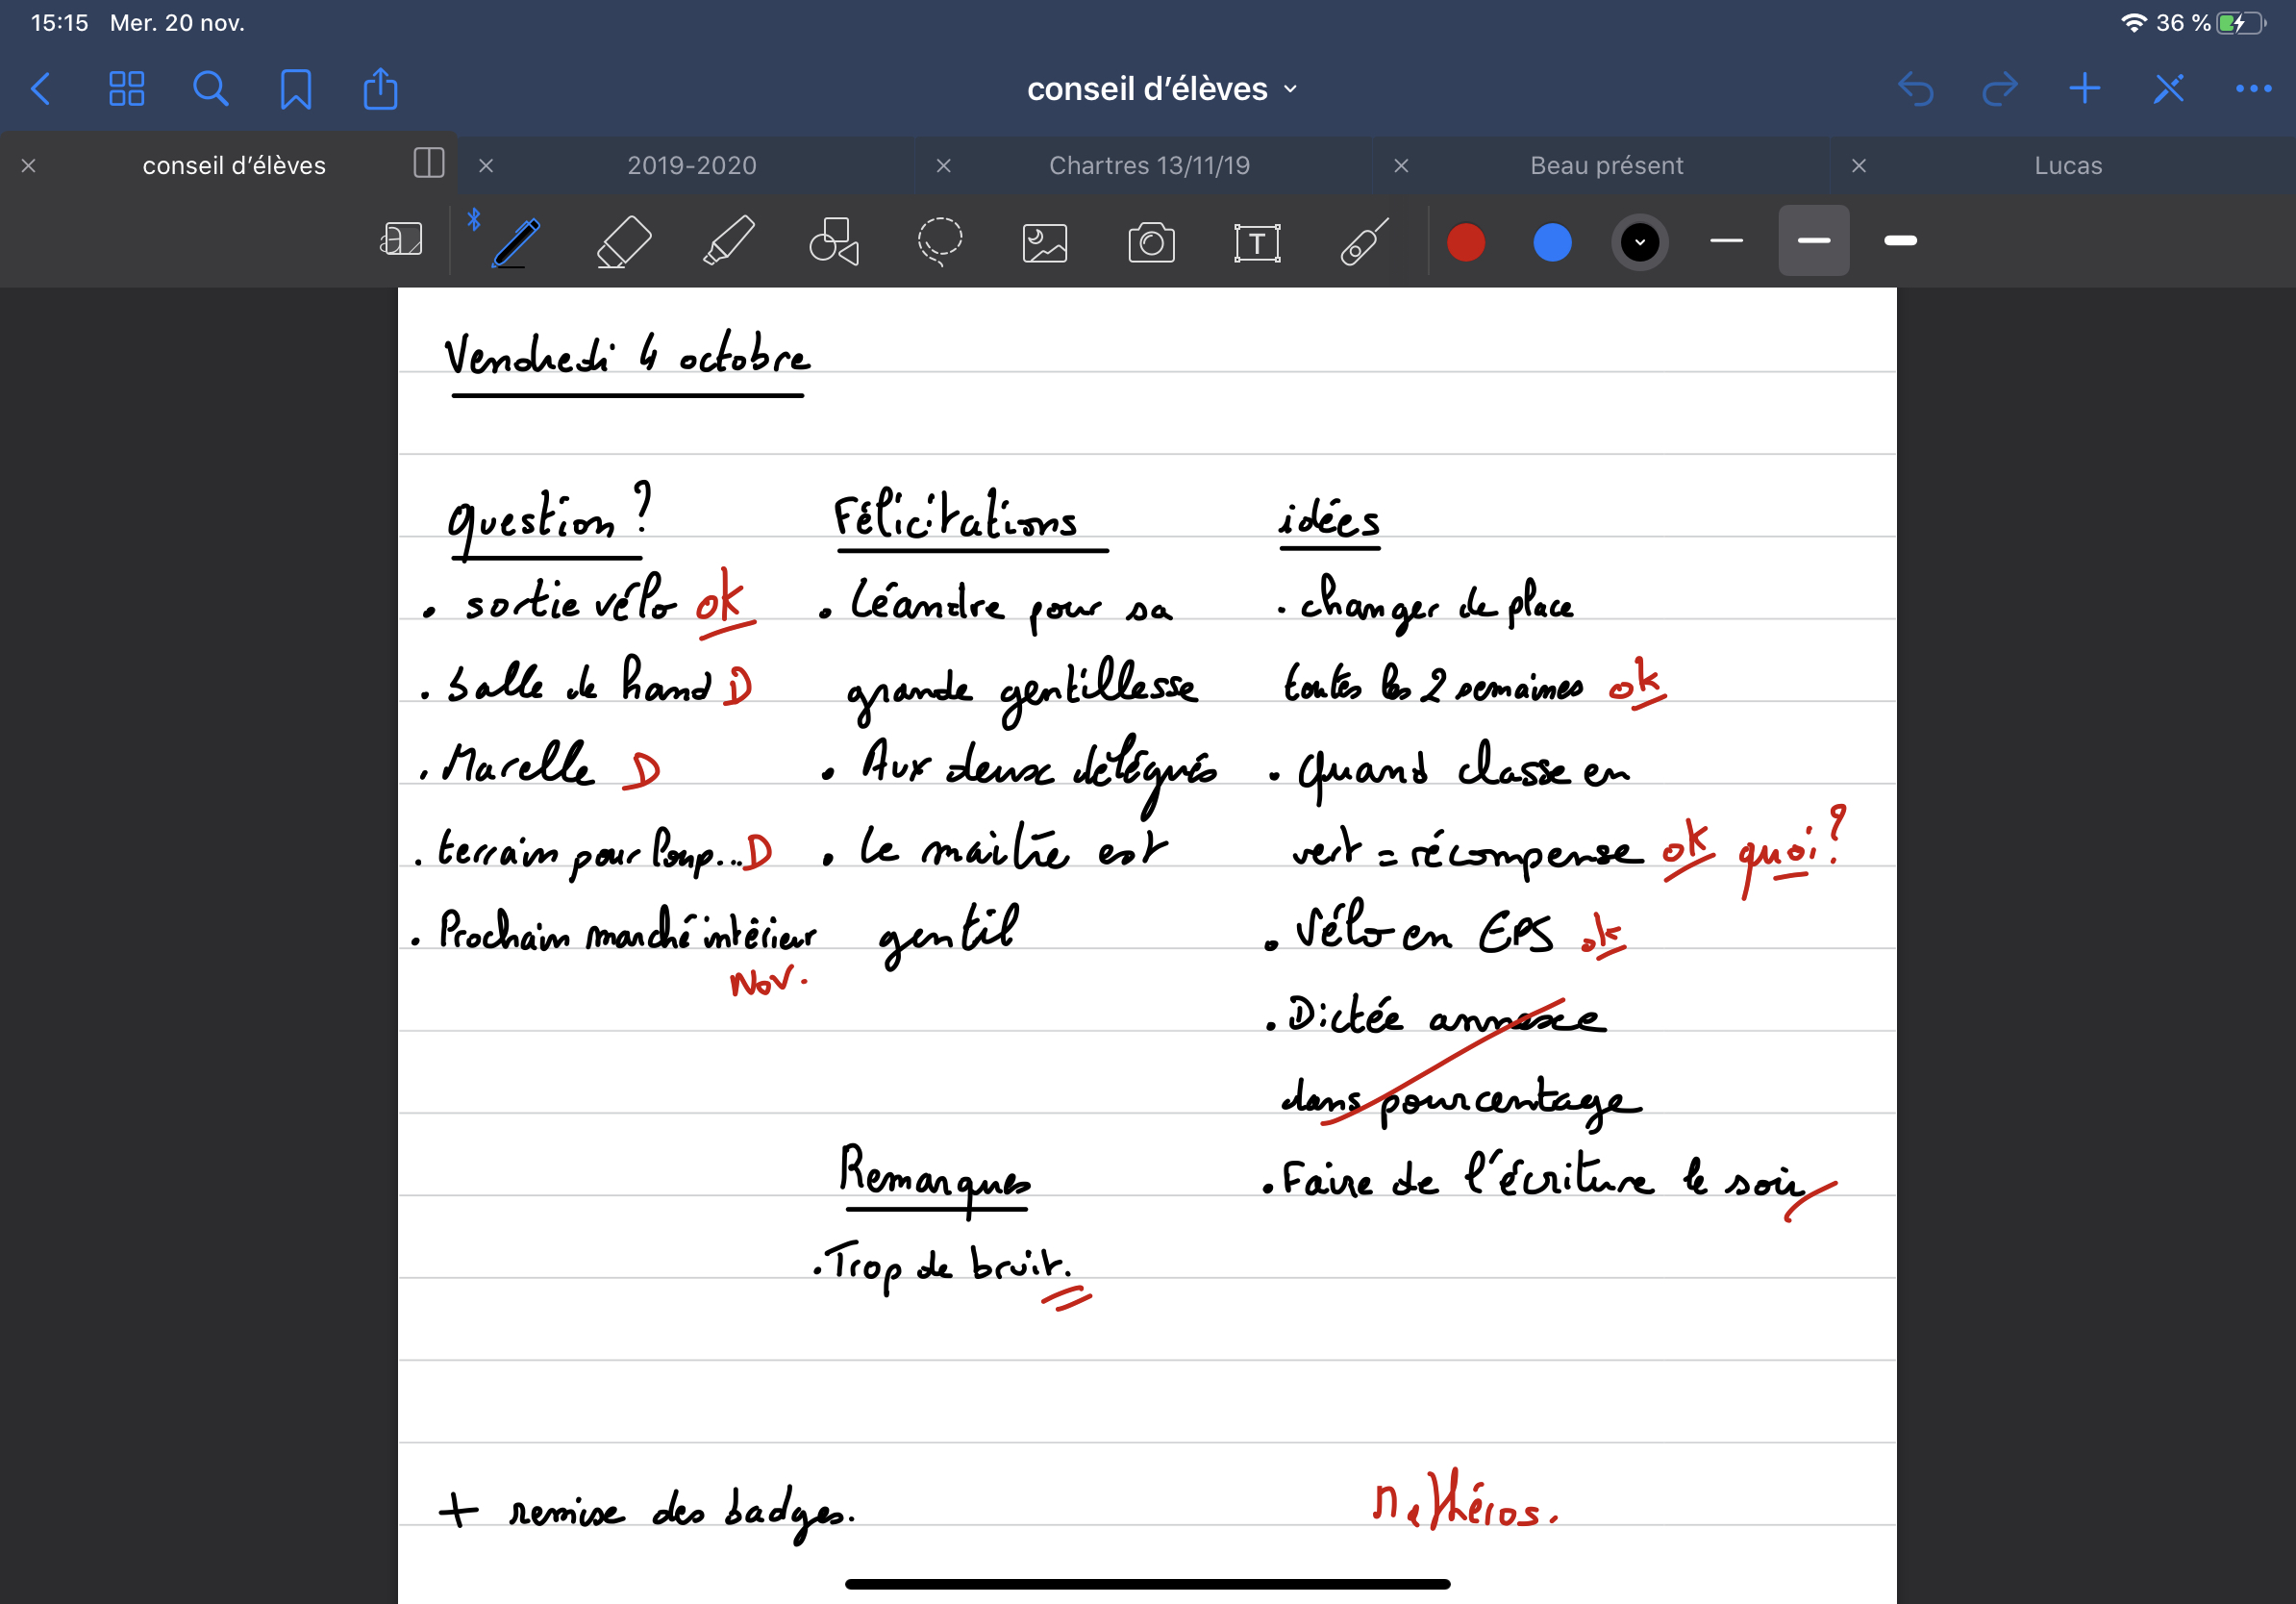 15:15 Mer. 20 nov.
36 %
conseil d'élèves
conseil d'élèves
2019-2020
Chartres 13/11/19
Beau présent
Lucas
T
Vendredi 4 octobre
question ?
. sortie vélo ok
. Salle de hand D
. Marelle D
. terrain pour loup... D
. Prochain marché intérieur
Nov.
Félicitations
. Léandre pour sa
grande gentillesse
. Aux deux délégués
. Le maître est
gentil
Remarques
. Trop de bruit.
idées
. changer de place
toutes les 2 semaines ok
. quand classe en
vert = récompense ok quoi ?
. Vélo en EPS ok
. Dictée annexe
dans pourcentage
. Faire de l'écriture le soir
+ remise des badges.